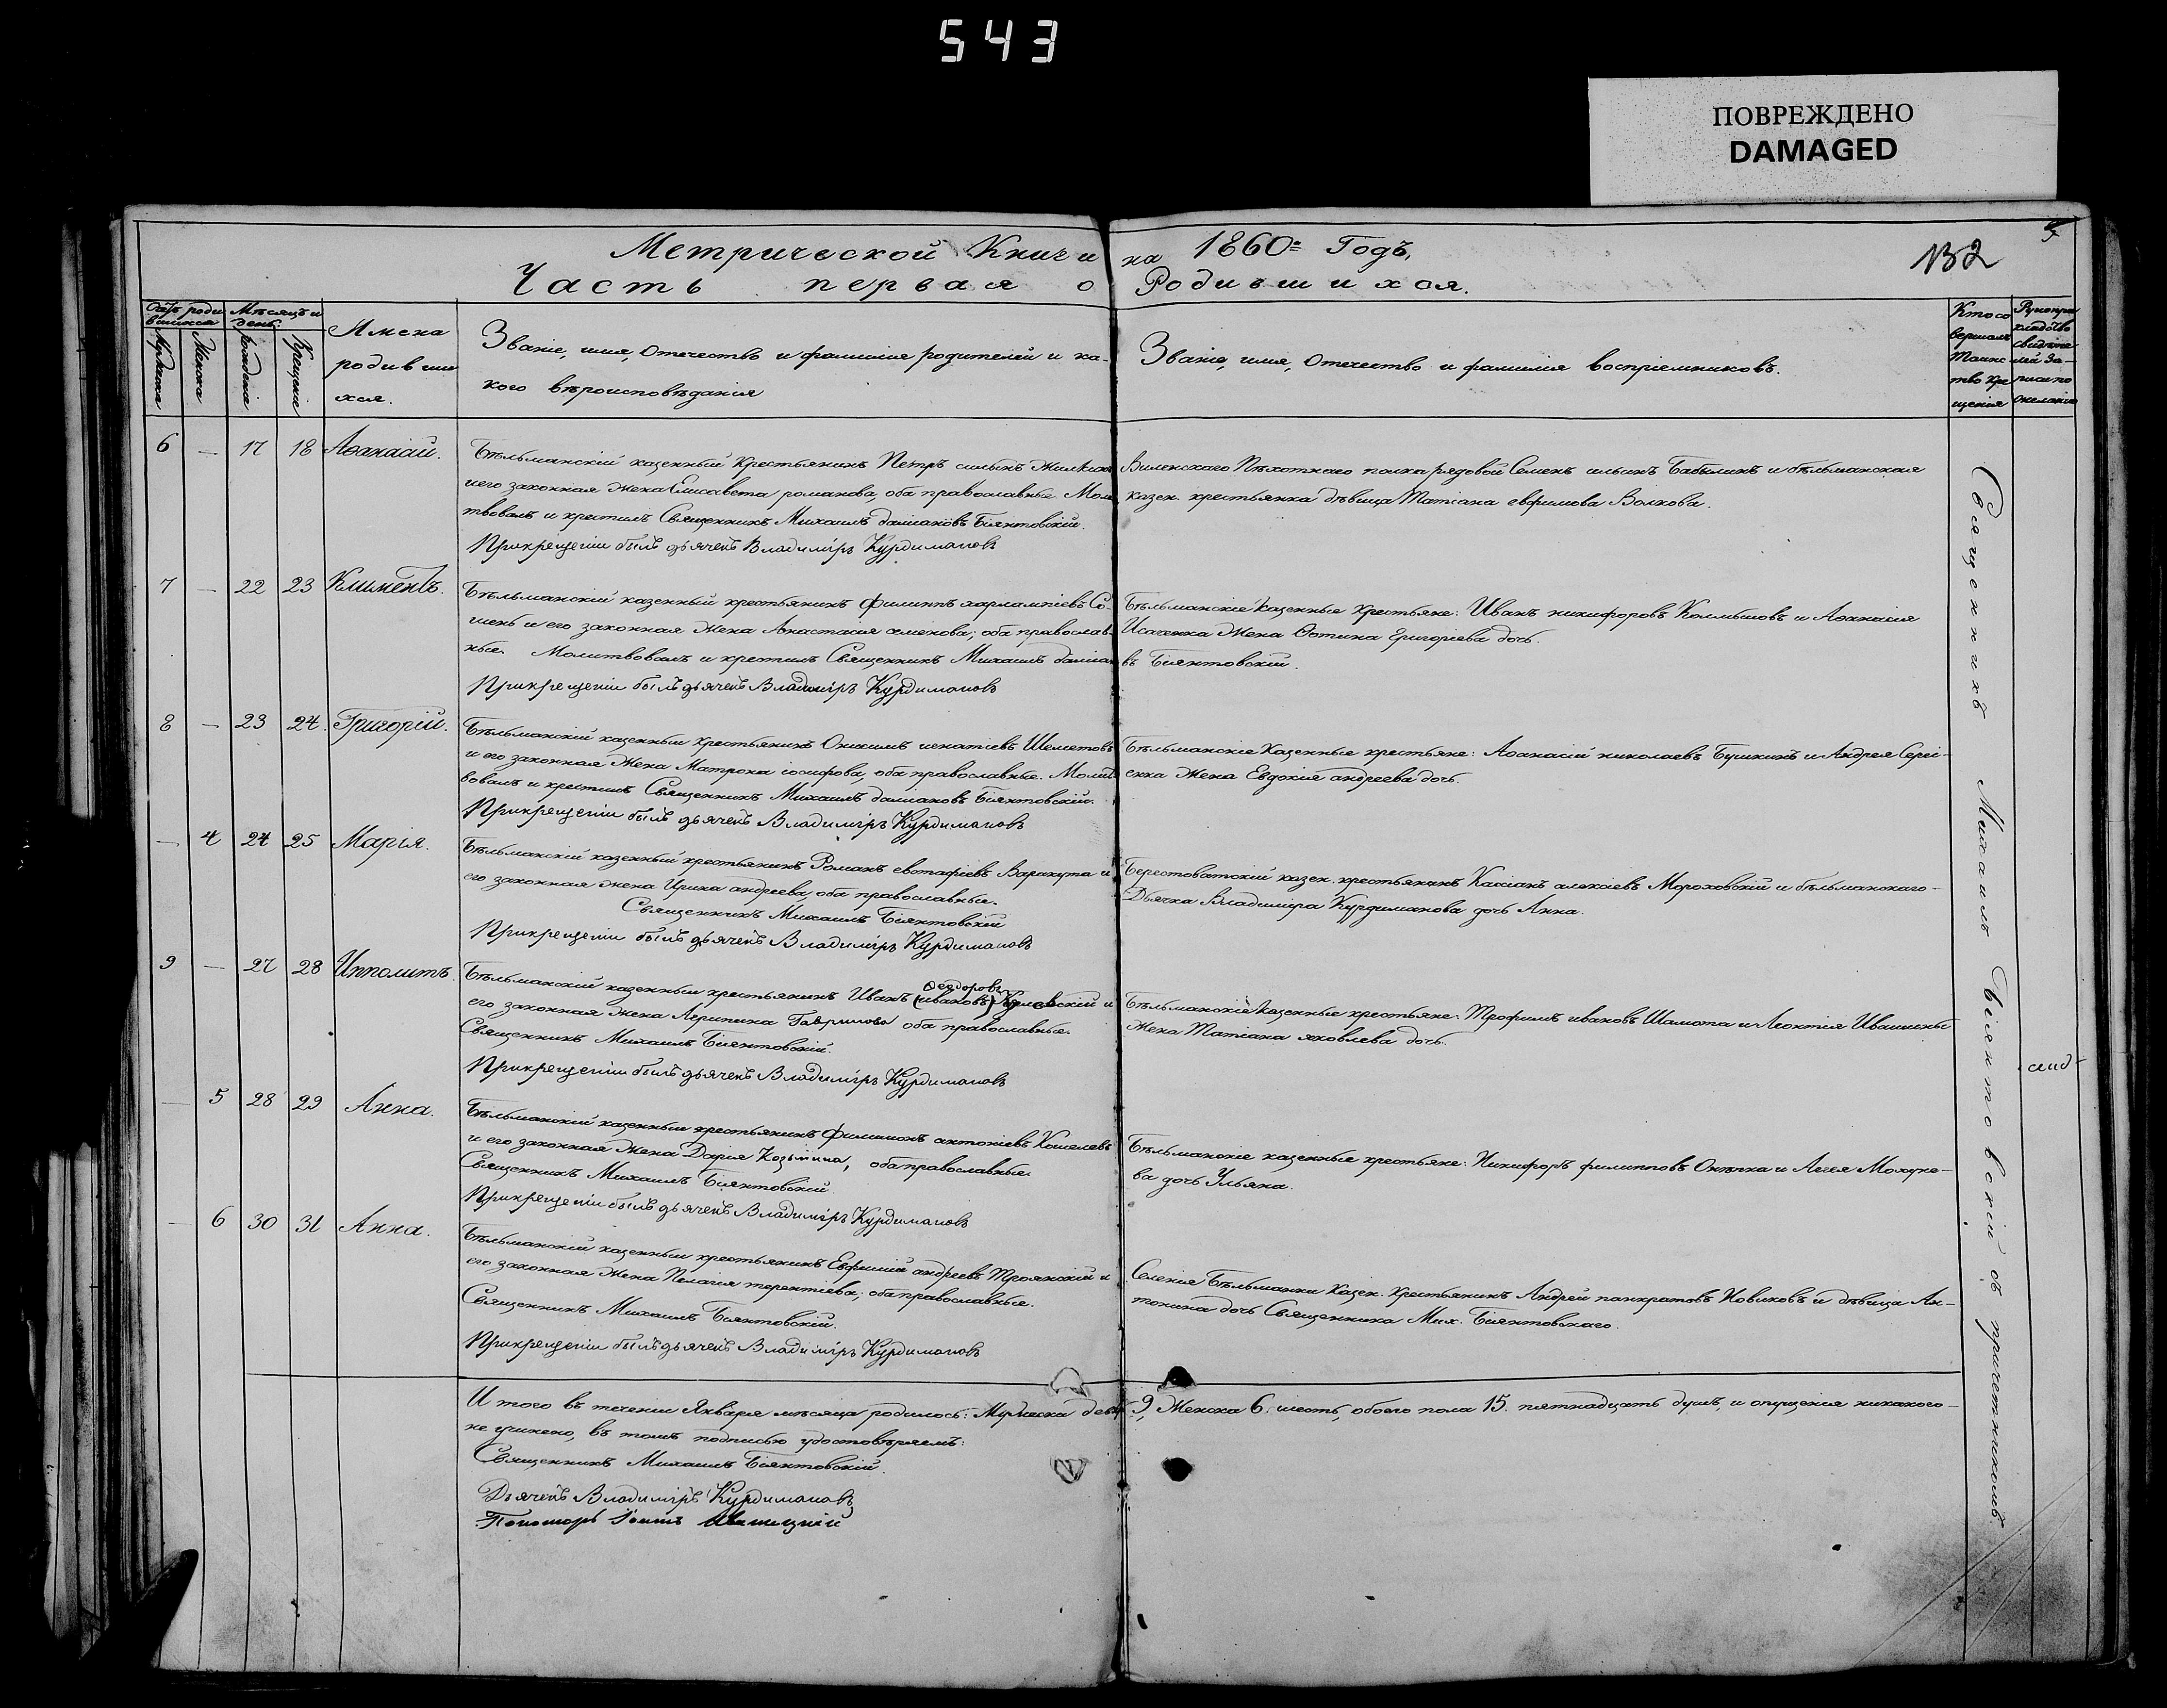 543
ПОВРЕЖДЕНО
DAMAGED
Метрической Книги на 1860= Годъ,
132
Часть первая о Родившихся.
Счетъ родившихся
Мѣсяцъ и день
Мужеска
Женска
рожденія
Крещенія
Имена
родивши
хся.
Званіе, имя, Отечество и фамилия родителей и ка-
кого вѣроисповѣданія
Званіе, имя, Отечество и фамилія воспріемниковъ.
Кто со
вершалъ
Таинс
тво кре
щенія
Рукопри
кладство
свидѣте
лей за-
писи по
желанію
6 — 17 18 Аѳанасій.
Бѣльманскій казенный Крестьянинъ Петръ
и его законная жена Елисавета романова, оба православные Моли
твовалъ и крестилъ Священникъ Михаилъ даміановъ Біянтовскій.
Прикрещеніи былъ дьячекъ Владиміръ Курдимановъ
Виленскаго Пѣхотнаго полка рядовой Семенъ ильинъ Бабылинъ и бѣльманская
казен. крестьянка дѣвица Татіана евфимова Волкова.
7 — 22 23 Климентъ.
Бѣльманскій казенный крестьянинъ Филиппъ харлампіевъ Со-
шенъ и его законная жена Анастасія семенова; оба православ-
ные. Молитвовалъ и крестилъ Священникъ Михаилъ даміано
въ Біянтовскій.
Прикрещеніи былъ дьячекъ Владиміръ Курдимановъ
Бѣльманскіе Казенные Крестьяне: Иванъ никифоровъ Колмышовъ и Аѳанасія
Исаченка жена Ѳотина григоріева дочь.
8 — 23 24. Григорій.
Бѣльманскій казенный крестьянинъ Онисимъ игнатіевъ Шеметовъ
и его законная жена Матрона іосифова, оба православные. Молит
вовалъ и крестилъ Священникъ Михаилъ даміановъ Біянтовскій.
Прикрещеніи былъ дьячекъ Владиміръ Курдимановъ
Бѣльманскіе Казенные крестьяне: Аѳанасій николаевъ Бушкинъ и Андрея Серге-
енка жена Евдокія андреева дочь.
— 4 24 25 Марія.
Бѣльманскій казенный крестьянинъ Романъ евстафіевъ Варакута и
его законная жена Ирина андреева, оба православные.
Священникъ Михаилъ Біянтовскій
Прикрещеніи былъ дьячекъ Владиміръ Курдимановъ
Берестоватскій казен. крестьянинъ Кассіанъ алексіевъ Мороховскій и бѣльманскаго-
Дьячка Владиміра Курдиманова дочь Анна.
9 — 27 28 Ипполитъ.
Ѳедоровъ
Бѣльманскій казенный крестьянинъ Иванъ (ивановъ) и
его законная жена Агрипина Гаврилова оба православные.
Священникъ Михаилъ Біянтовскій.
Прикрещеніи былъ дьячекъ Владиміръ Курдимановъ
Бѣльманскіе казенные крестьяне: Трофимъ ивановъ Шамота и Леонтія Ивашины
жена Татіана яковлева дочь.
— 5 28 29 Анна.
Бѣльманскій казенный крестьянинъ Филимонъ антоніевъ Кошелевъ
и его законная жена Дарія Козьмина, оба православные.
Священникъ Михаилъ Біянтовскій
Прикрещеніи былъ дьячекъ Владиміръ Курдимановъ
Бѣльманскіе казенные крестьяне: Никифоръ филипповъ и
ва дочь Ульяна.
— 6 30 31 Анна.
Бѣльманскій казенный крестьянинъ Евфимій андреевъ Троянскій и
его законная жена Пелагія терентіева; оба православные.
Священникъ Михаилъ Біянтовскій.
Прикрещеніи былъ дьячекъ Владиміръ Курдимановъ
Селенія Бѣльманки Казен. крестьянинъ Андрей панкратовъ Новиковъ и дѣвица Ан-
тонина дочь Священника Мих. Біянтовскаго.
Священникъ Михаилъ Біянтовскій съ причетникомъ.
Итого въ теченіи Января мѣсяца родилось: Мужеска девять 9, Женска 6. шесть, обоего пола 15. пятнадцать душъ, и опущенія никакого-
не учинено, въ томъ подписью удостовѣряемъ:
Священникъ Михаилъ Біянтовскій.
Дьячекъ Владиміръ Курдимановъ
Пономарь